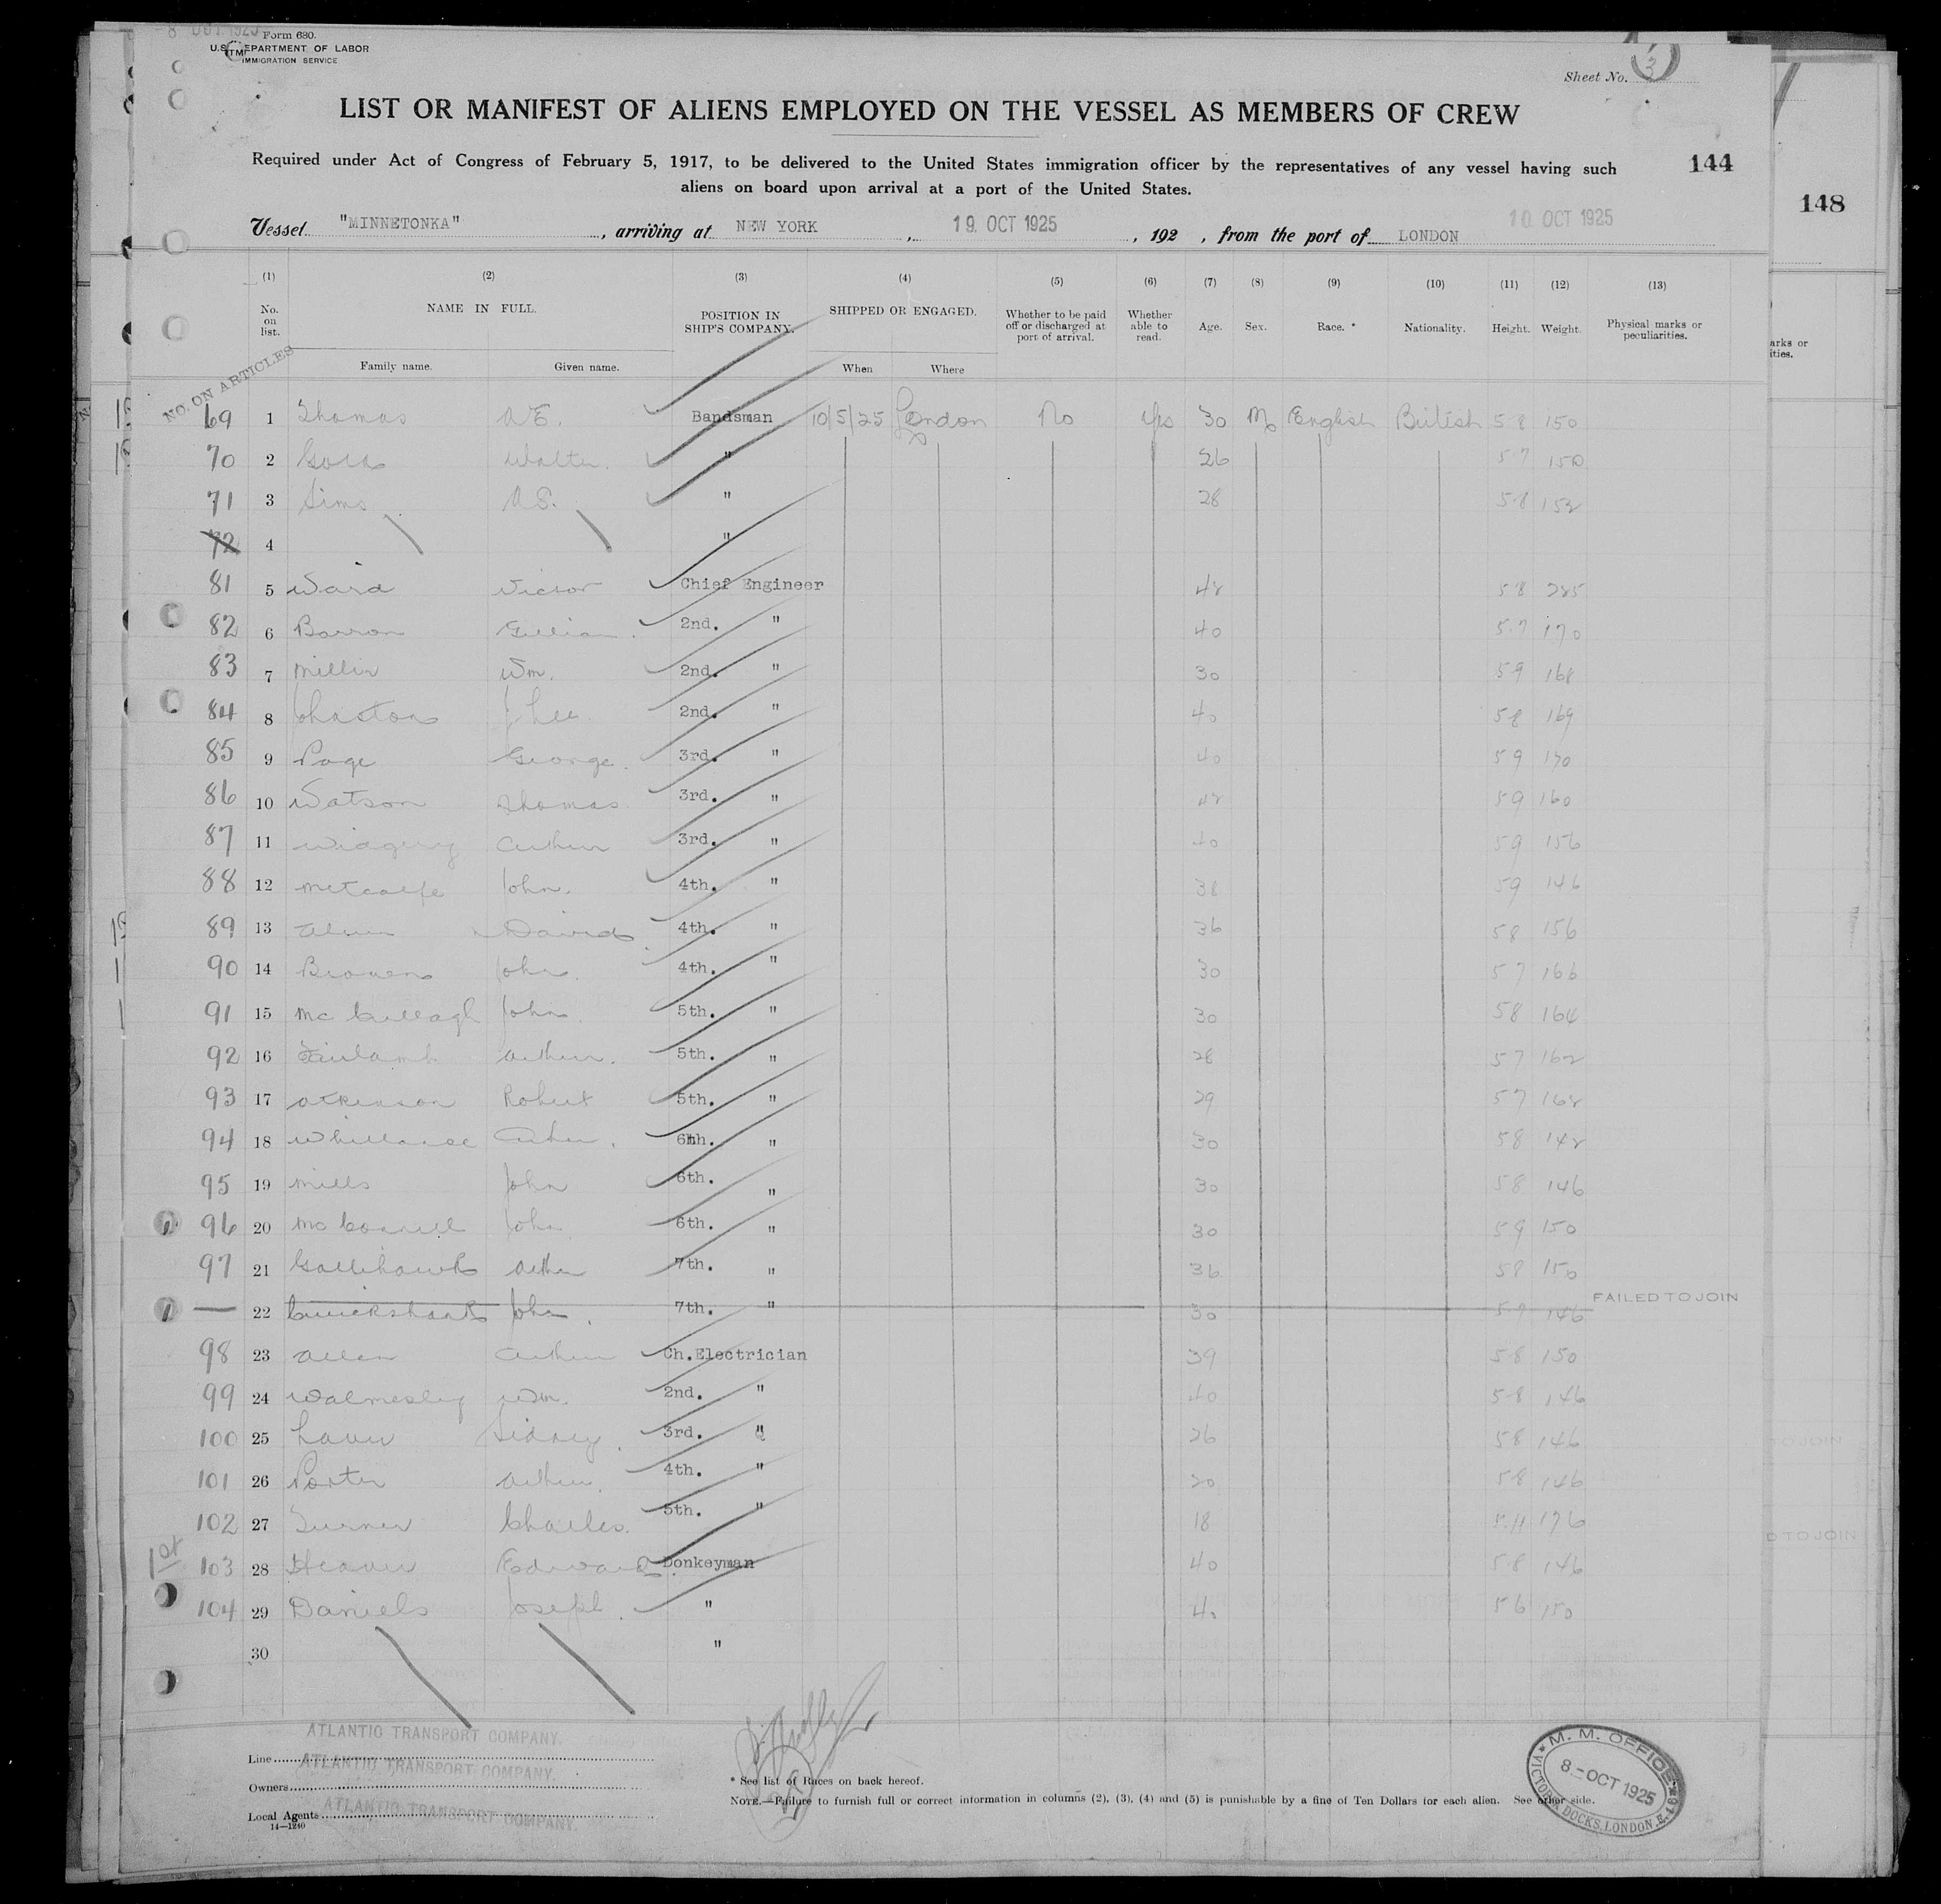 Form 680.
U.S. DEPARTMENT OF LABOR
IMMIGRATION SERVICE
Sheet No. 3
LIST OR MANIFEST OF ALIENS EMPLOYED ON THE VESSEL AS MEMBERS OF CREW
Required under Act of Congress of February 5, 1917, to be delivered to the United States immigration officer by the representatives of any vessel having such
aliens on board upon arrival at a port of the United States.
144
148
Vessel "MINNETONKA", arriving at NEW YORK, 19 OCT 1925, 192 , from the port of LONDON 10 OCT 1925
(1) (2) (3) (4) (5) (6) (7) (8) (9) (10) (11) (12) (13)
No. on list. NAME IN FULL. POSITION IN SHIP'S COMPANY. SHIPPED OR ENGAGED. Whether to be paid off or discharged at port of arrival. Whether able to read. Age. Sex. Race. * Nationality. Height. Weight. Physical marks or peculiarities.
Family name. Given name. When Where
NO. ON ARTICLES
69 1 Thomas A.E. Bandsman 10/5/25 London No Yes 30 M English British 5 8 150
70 2 Walter. " 26 5 7 150
71 3 Sims A.S. " 28 5 8 152
72 4 "
81 5 Ward Victor Chief Engineer 48 5 8 285
82 6 Barron 2nd. " 40 5 7 170
83 7 Miller Wm. 2nd. " 30 5 9 168
84 8 Johnston 2nd. " 40 5 8 169
85 9 Page George. 3rd. " 40 5 9 170
86 10 Watson Thomas 3rd. " 48 5 9 160
87 11 Widgery Arthur 3rd. " 40 5 9 156
88 12 Metcalfe John. 4th. " 38 5 9 146
89 13 David 4th. " 36 5 8 156
90 14 John. 4th. " 30 5 7 166
91 15 McCullagh John. 5th. " 30 5 8 164
92 16 Fairlamb Arthur. 5th. " 28 5 7 162
93 17 Atkinson Robert 5th. " 29 5 7 168
94 18 Arthur. 6th. " 30 5 8 148
95 19 Mills John 6th. " 30 5 8 146
96 20 John 6th. " 30 5 9 150
97 21 Gallihawk Arthur 7th. " 36 5 8 150
— 22 Cruickshank John. 7th. " 30 5 9 146 FAILED TO JOIN
98 23 Allen Arthur Ch.Electrician 39 5 8 150
99 24 Walmesley Wm. 2nd. " 40 5 8 146
100 25 Sidney. 3rd. " 26 5 8 146
101 26 Porter Arthur. 4th. " 20 5 8 146
102 27 Turner Charles. 5th. " 18 5.11 176
1st 103 28 Edward Donkeyman 40 5 8 146
104 29 Daniels Joseph. " 40 5 6 150
30 "
Line ATLANTIC TRANSPORT COMPANY.
Owners ATLANTIC TRANSPORT COMPANY.
Local Agents ATLANTIC TRANSPORT COMPANY.
14—1240
* See list of Races on back hereof.
NOTE.—Failure to furnish full or correct information in columns (2), (3), (4) and (5) is punishable by a fine of Ten Dollars for each alien. See other side.
M. M. OFFICE
8-OCT 1925
VICTORIA DOCKS, LONDON, E.16